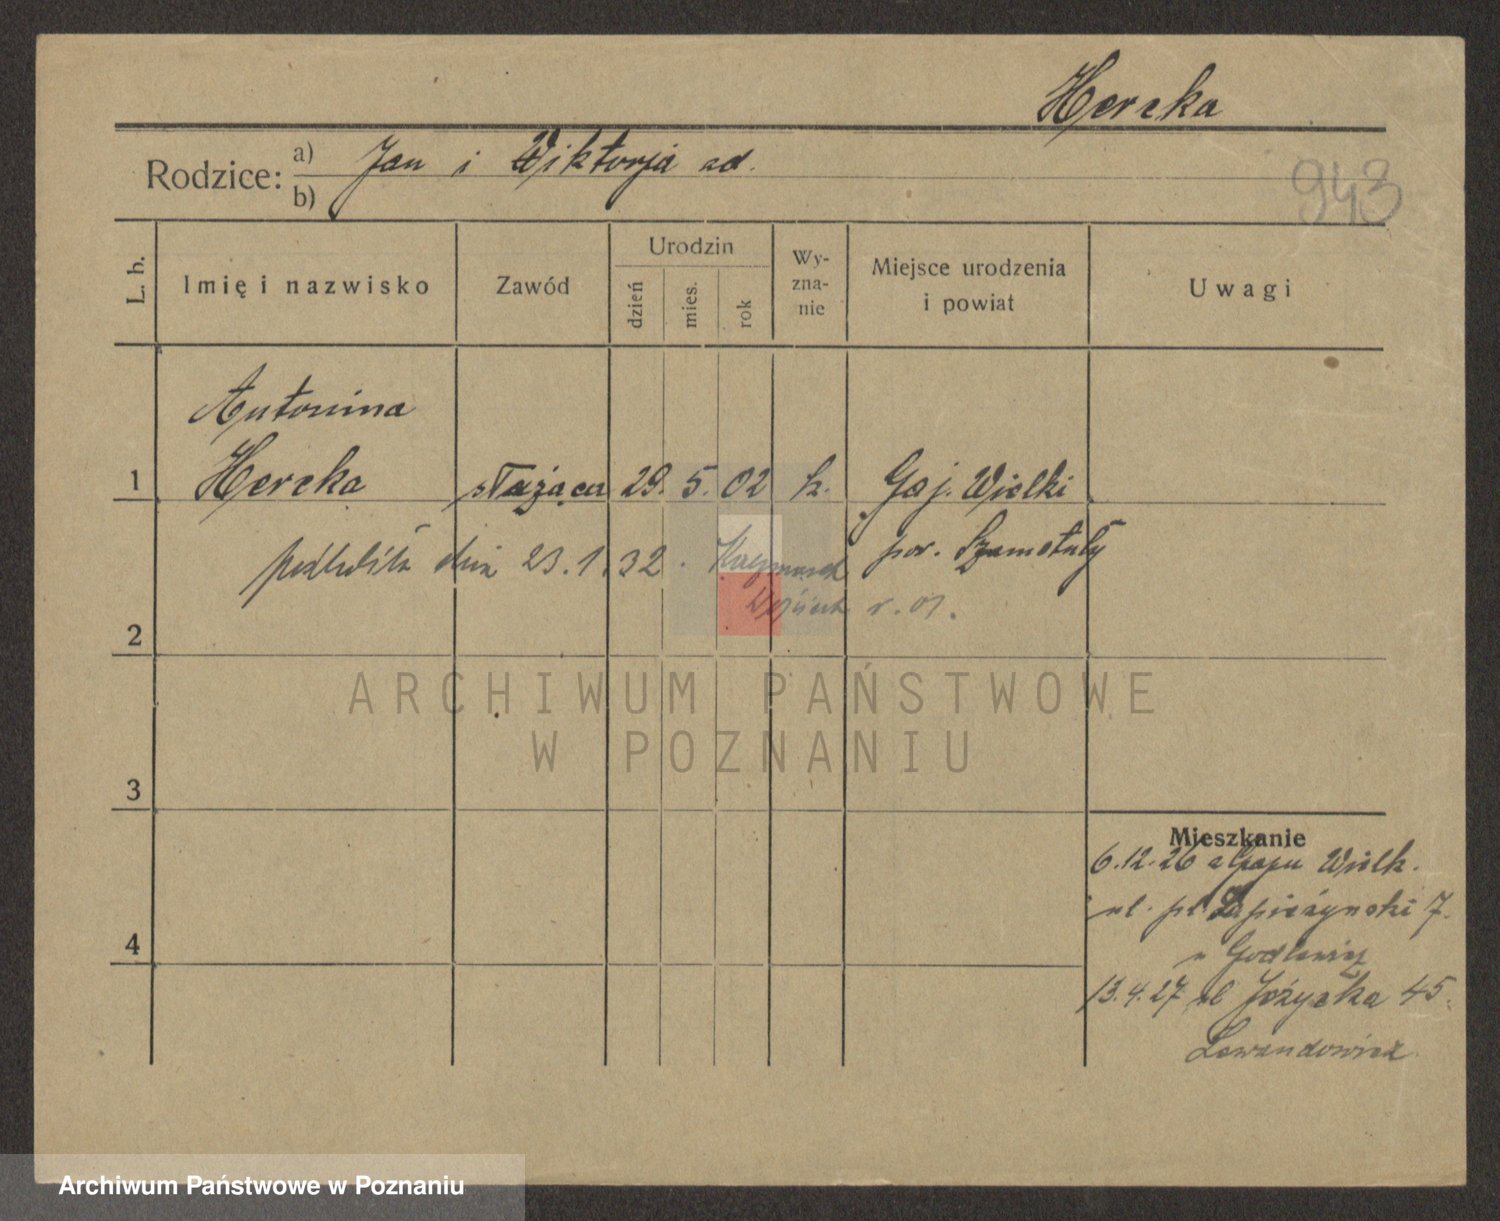 Hercka
Rodzice: a) Jan i Wiktorja
b)
943
L. b.
Imię i nazwisko
Zawód
Urodzin
dzień
mies.
rok
Wy-
zna-
nie
Miejsce urodzenia
i powiat
Uwagi
Antonina
1 Hercka służąca 29. 5. 02 k. Gaj. Wielki
dnia 23.1.32. pow. Szamotuły
r. 01.
2
ARCHIWUM PAŃSTWOWE
W POZNANIU
3
Mieszkanie
6.12.26 z Gaju Wielk.
ul. pl Sapieżyński 7.
4
13.4.27 ul 45.
Lewandowicz
Archiwum Państwowe w Poznaniu